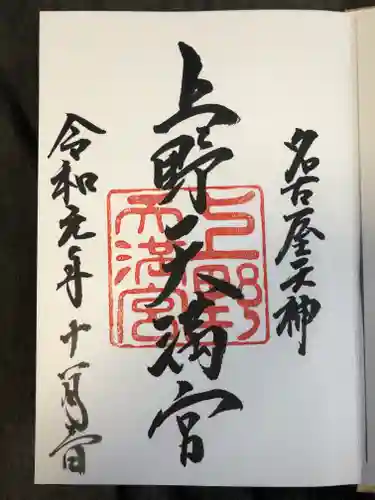 名古屋天神
上野天満宮
令和元年十一月 日
上野
天満宮